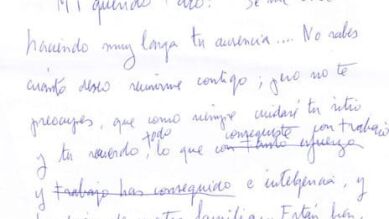 Mi querido
haciendo muy larga tu ausencia.... No sabes
cuánto deseo reunirme contigo; pero no te
preocupes, que como siempre cuidaré tu sitio
todo conseguiste con trabajo
y tu recuerdo, lo que con tanto esfuerzo
y trabajo has conseguido e inteligencia, y
familia... Están